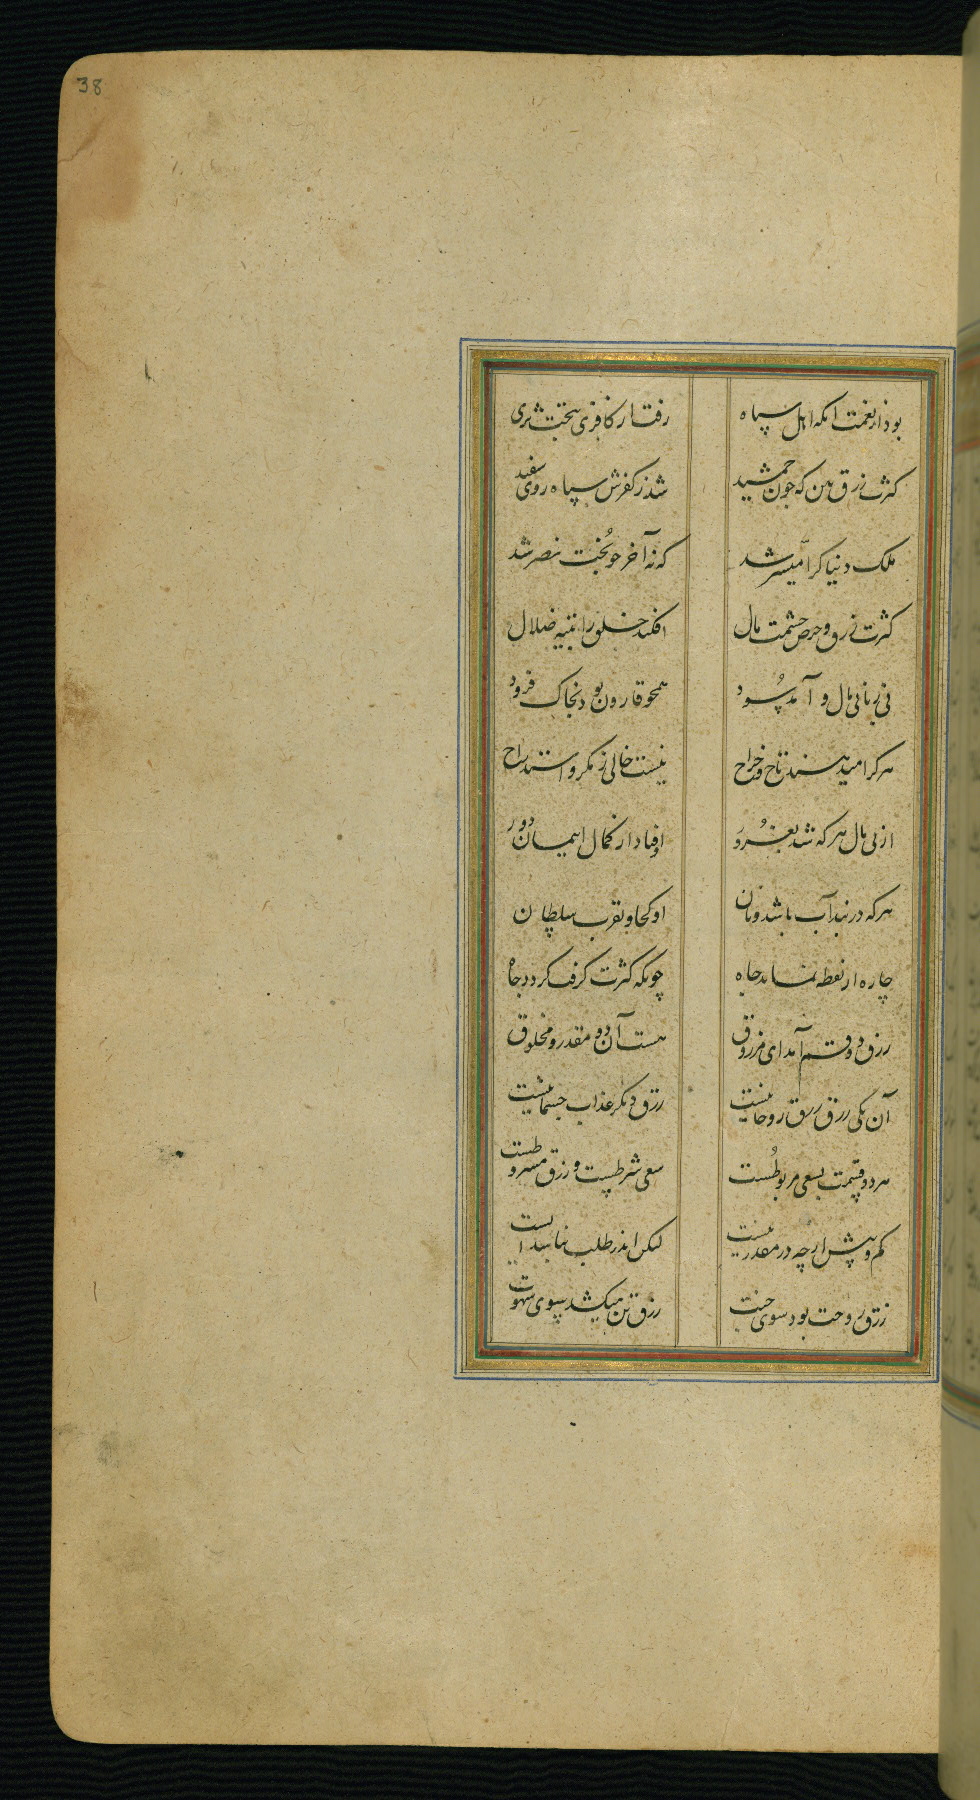 38
بود از نعمت آنکه اهل سپاه رفت از کافری بتحت ثری
کثرت رزق بین که چون جمشید شد ز کفرش سیاه روی سفید
ملک دنیا کرا میسر شد که نه آخر چو بخت نصر شد
کثرت رزق و حرص حشمت مال افکند خلق را بتیه ضلال
فی زیانی مال و آمد سود همچو قارون بود بخاک فرود
هر کرا میدهند تاج و خراج نیست خالی ز مکر و استدراج
از پی مال هر که شد بغرور اوفتاد از کمال ایمان دور
هر که در بند آب باشد و نان او کجا و تقرب سلطان
چاره از نقطه نماند جاه چونکه کثرت گرفت گردد جاه
رزق دو قسم آمد ای مرزوق هست آن دو مقدر و مخلوق
آن یکی رزق رزق روحانیست رزق دیگر عذاب جسمانیست
هر دو قسمت بسعی مربوطست سعی شرطیست و رزق مشروطست
کم و بیش ارچه در مقدر نیست لیکن اندر طلب بباید ایست
رزق روحت بود سوی جنت رزق تن میکشد بسوی شهوت